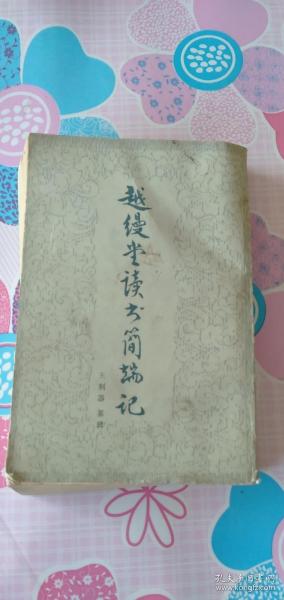 越缦堂读书简端记
王利器 纂辑
孔夫子旧书网